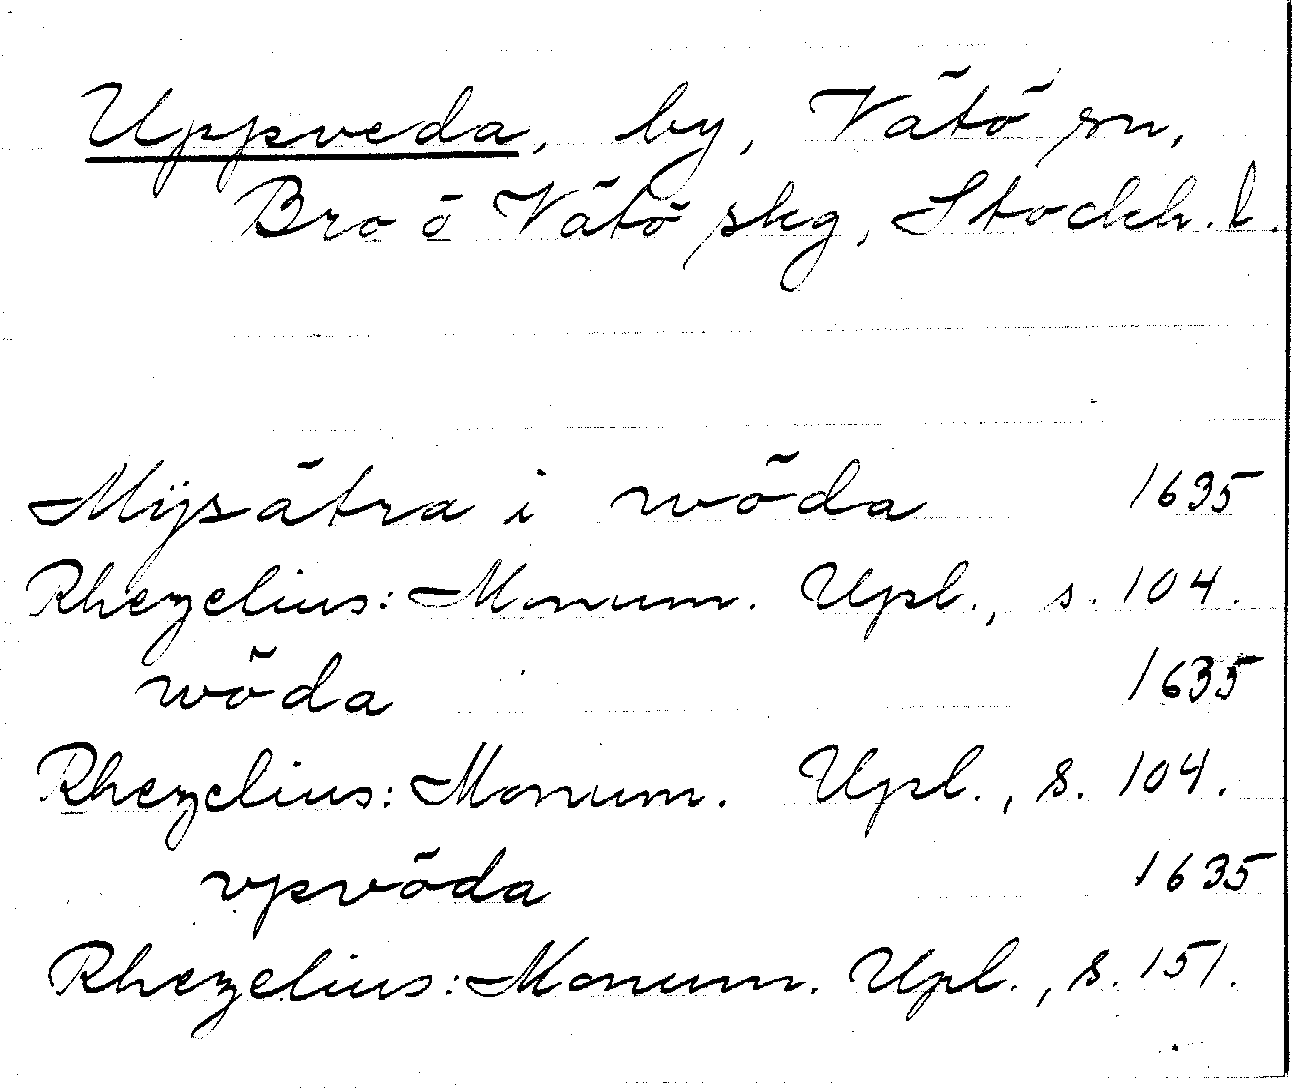 Uppveda, by, Vätö sn,
Bro o Vätö skg, Stockh. l.
Mÿsätra i wöda 1635
Rhezelius: Monum. Upl., s. 104.
wöda 1635
Rhezelius: Monum. Upl., s. 104.
vpvöda 1635
Rhezelius: Monum. Upl., s. 151.